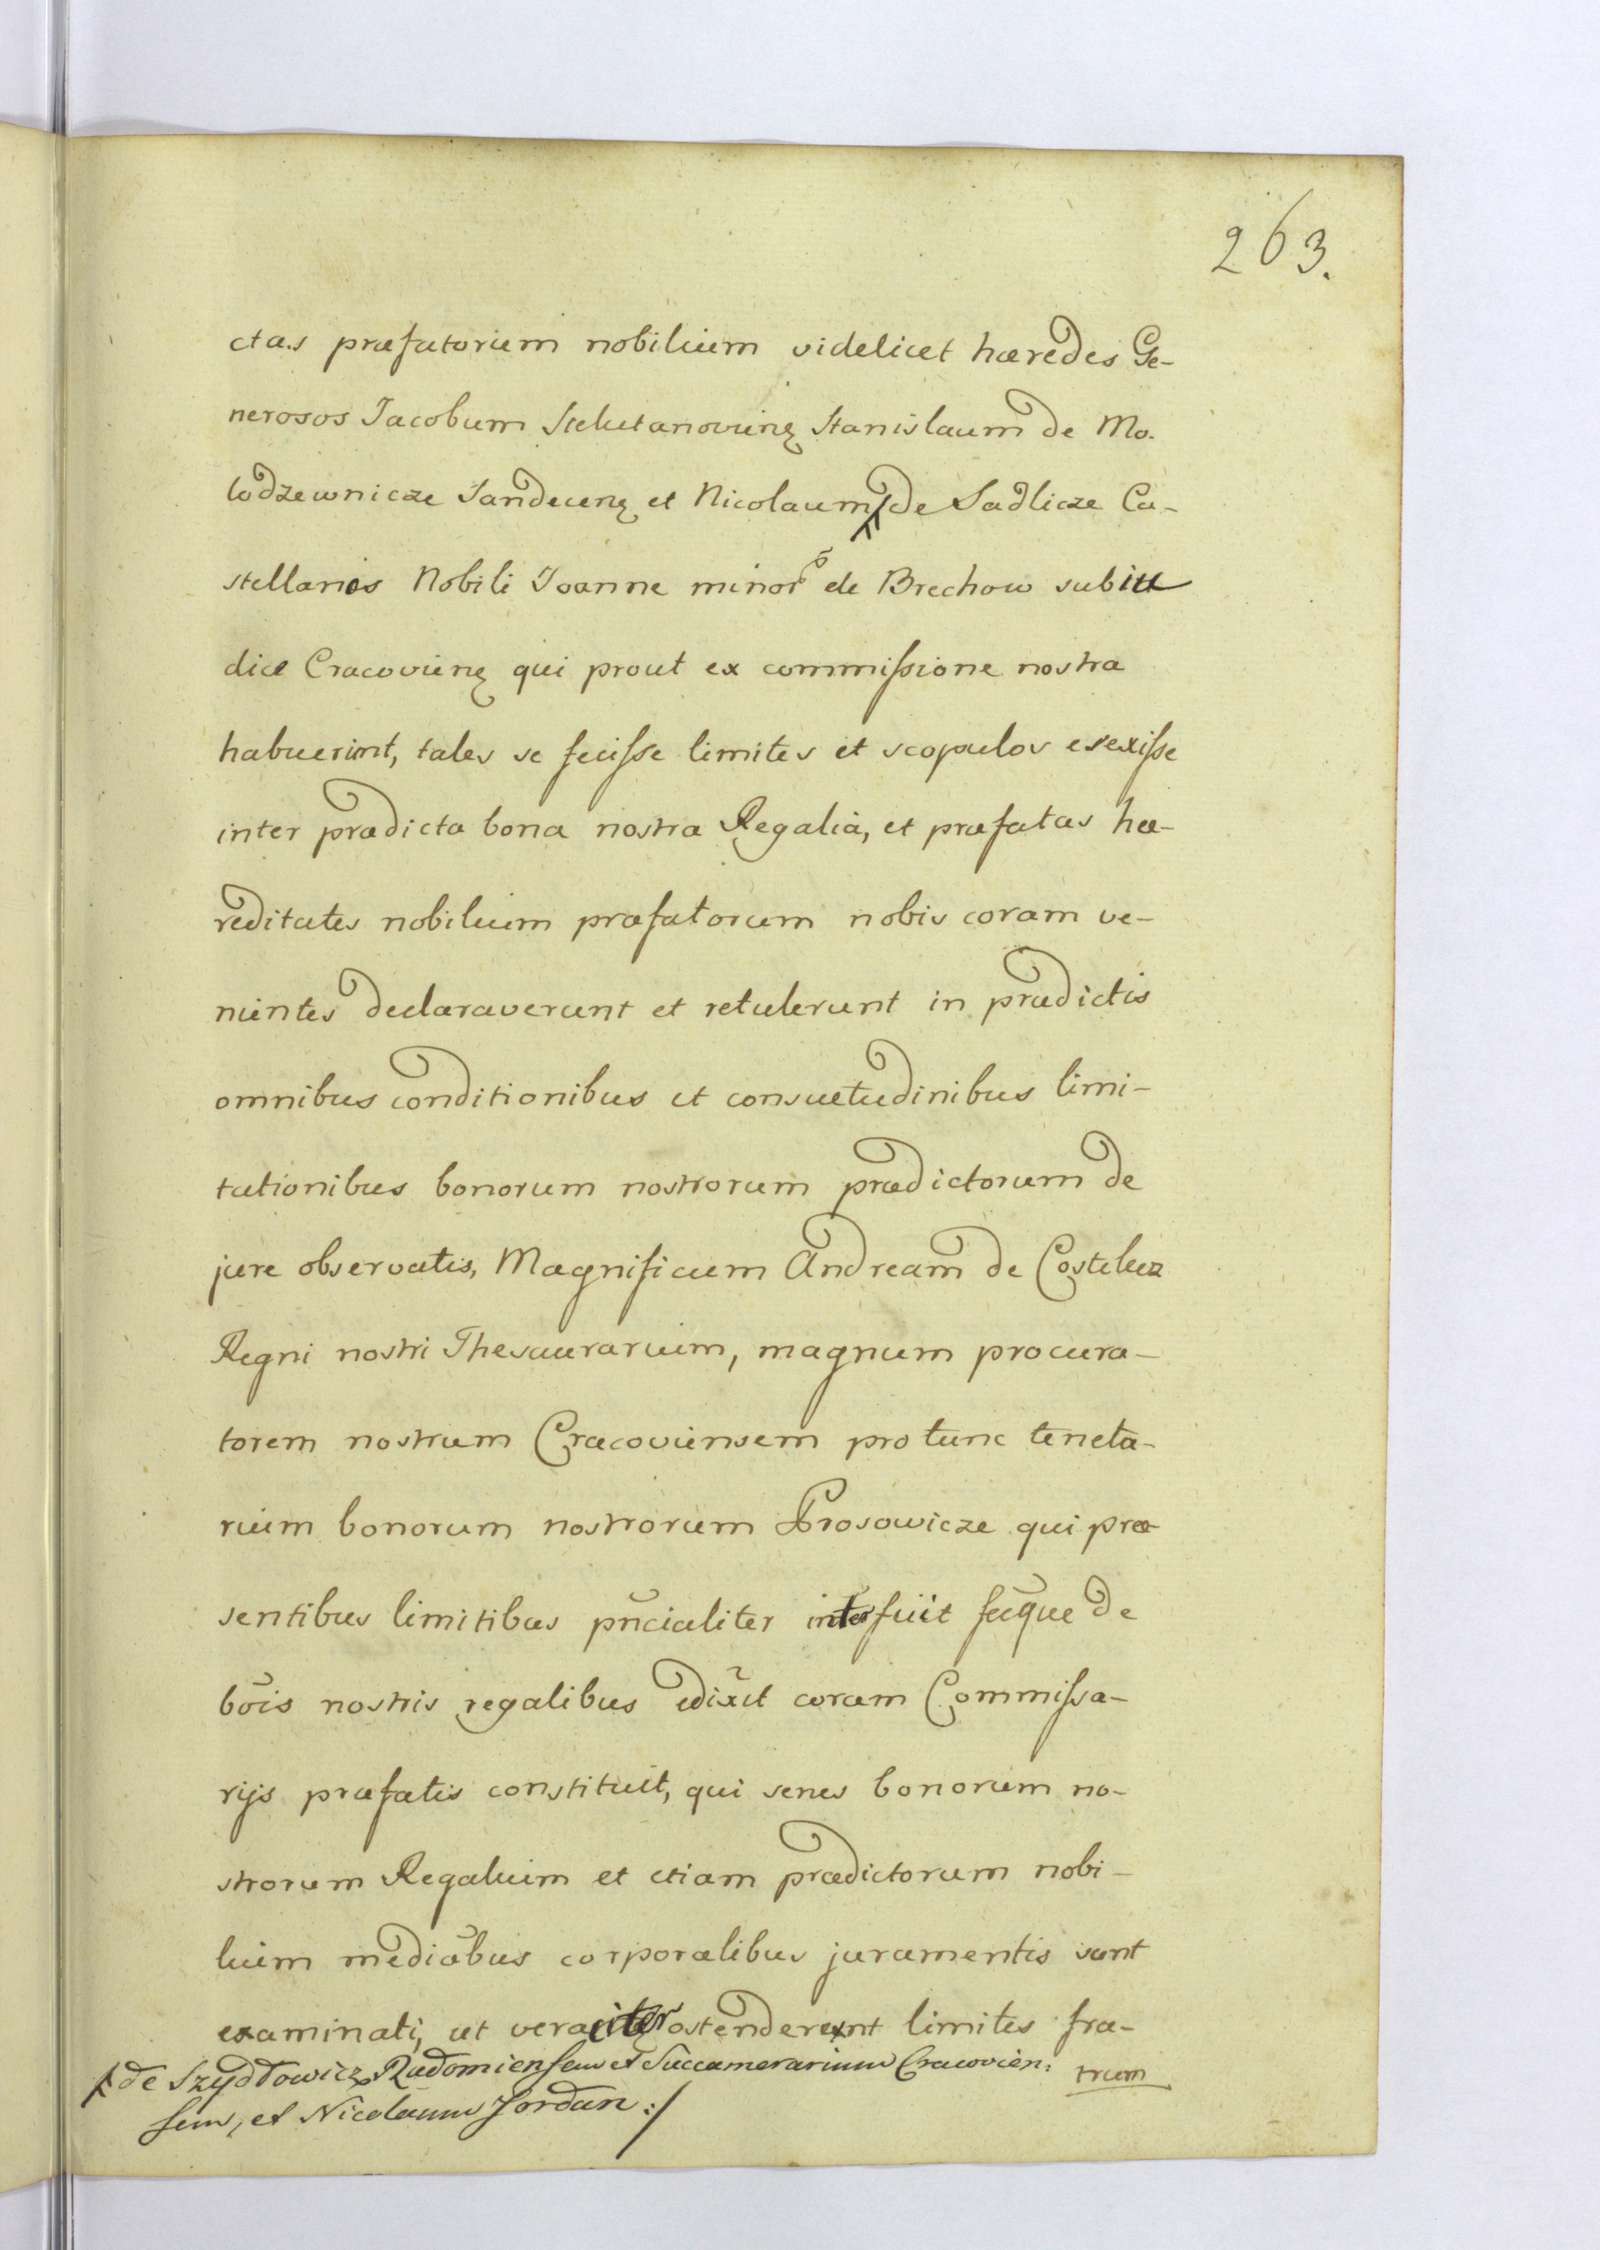 263.
ctas præfatorum nobilium videlicet hæredes Ge-
nerosos Jacobum Stelutanovienę Stanislaum de Mo-
lodzewnicze Sandecenę et Nicolaum de Sadlicze Ca-
stellanos Nobili Joanne minore de Brechow subiu
dice Cracovienę qui prout ex commissione nostra
habuerint, tales se fecisse limites et scopulos erexisse
inter prædicta bona nostra Regalia, et præfatas hæ-
reditates nobilium præfatorum nobis coram ve-
nientes declaraverunt et retulerunt in prædictis
omnibus conditionibus et consuetudinibus limi-
tationibus bonorum nostrorum prædictorum de
jure observatis, Magnificum Andream de Costelecz
Regni nostri Thesaurarium, magnum procura-
torem nostrum Cracoviensem pro tunc teneta-
rium bonorum nostrorum Prosowicze qui præ-
sentibus limitibus pñcialiter interfuit seq̃ue de
bõis nostris regalibus edixit coram Commissa-
rijs præfatis constituit, qui senes bonorum no-
strorum Regalium et etiam prædictorum nobi-
lium mediãbus corporalibus juramentis sunt
examinati, ut veraciter ostenderent limites fra-
trum
de Szydłowicz Radomiensem et Succamerarium Cracovien:
sem, et Nicolaum Jordan :/